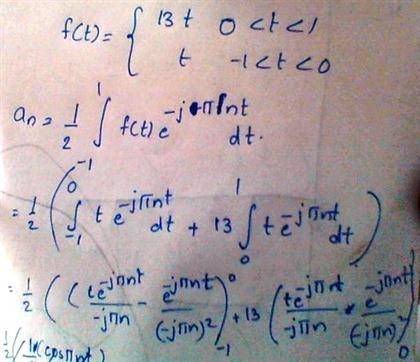 f(t) = { 13 t 0 < t < 1
t -1 < t < 0
aₙ = 1/2 ∫₋₁¹ f(t) e^(-jπnt) dt.
= 1/2 ( ∫₋₁⁰ t e^(-jπnt) dt + 13 ∫₀¹ t e^(-jπnt) dt )
= 1/2 ( ( te^(-jπnt)/(-jπn) - e^(-jπnt)/(-jπn)² )₋₁⁰ + 13 ( te^(-jπnt)/(-jπn) e^(-jπnt)/(-jπn)² )₀